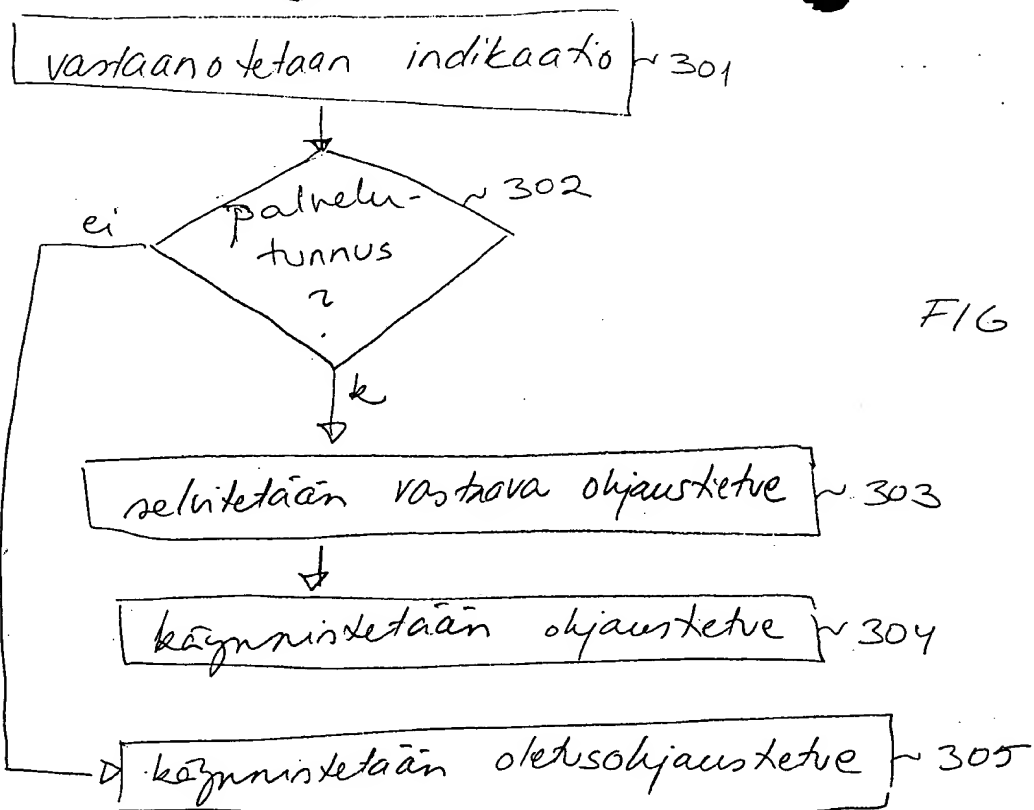 vastaanotetaan indikaatio ~ 301
palvelu- ~ 302
ei
tunnus
?
FIG
k
selvitetään vastaava ohjaustietue ~ 303
käynnistetään ohjaustietue ~ 304
käynnistetään oletusohjaustietue ~ 305